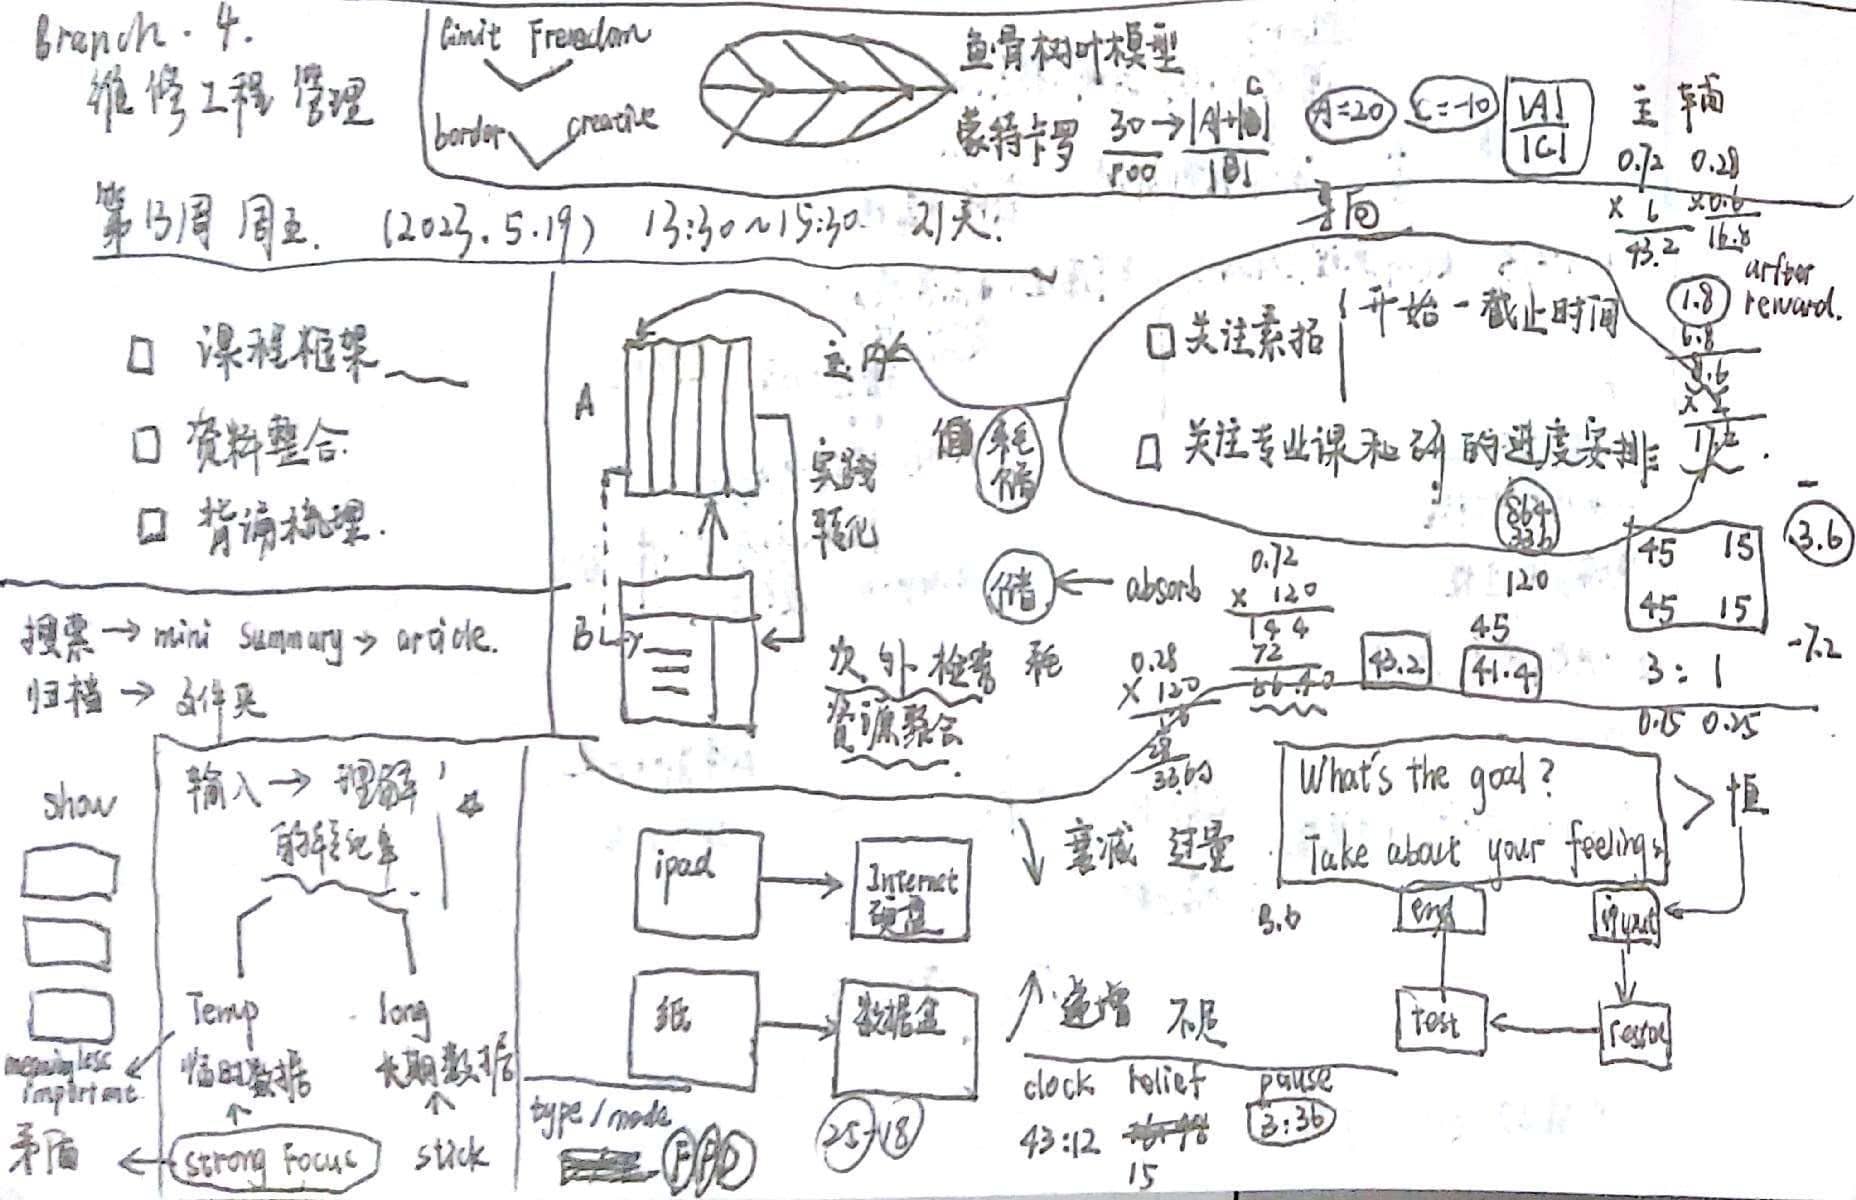 Branch. 4.
维修工程管理
limit Freedom
border creative
鱼骨树叶模型
蒙特卡罗
30
800
A=20
C=-10
|A|
|C|
主 辅
0.72 0.28
43.2 16.8
矛盾
第13周 周五. (2023.5.19) 13:30~15:30 21天.
1.8
after
reward.
6.8
□ 课程框架
□ 资料整合.
□ 背诵梳理.
A
B
主内
实践
转化
耗
储
储 ← absorb
次外检索 耗
资源聚合.
□ 关注素拓 开始-截止时间
□ 关注专业课和研的进度安排
864
336
120
45 15
45 15
3.6
-7.2
3:1
0.75 0.25
0.72
× 120
144
72
86.40
0.28
× 120
33.60
43.2
45
41.4
搜索 → mini summary → article.
归档 → 文件夹
show
输入 → 理解
的转化率
Temp
临时数据
long
长期数据
meaningless
important
矛盾 ← strong Focus
stick
ipad → Internet
硬盘
纸 → 数据盒
type/mode
25-18
衰减 过量
递增 不足
clock relief pause
43:12 3:36
15
What's the goal?
Take about your feelings
恒
3.6
end
input
test